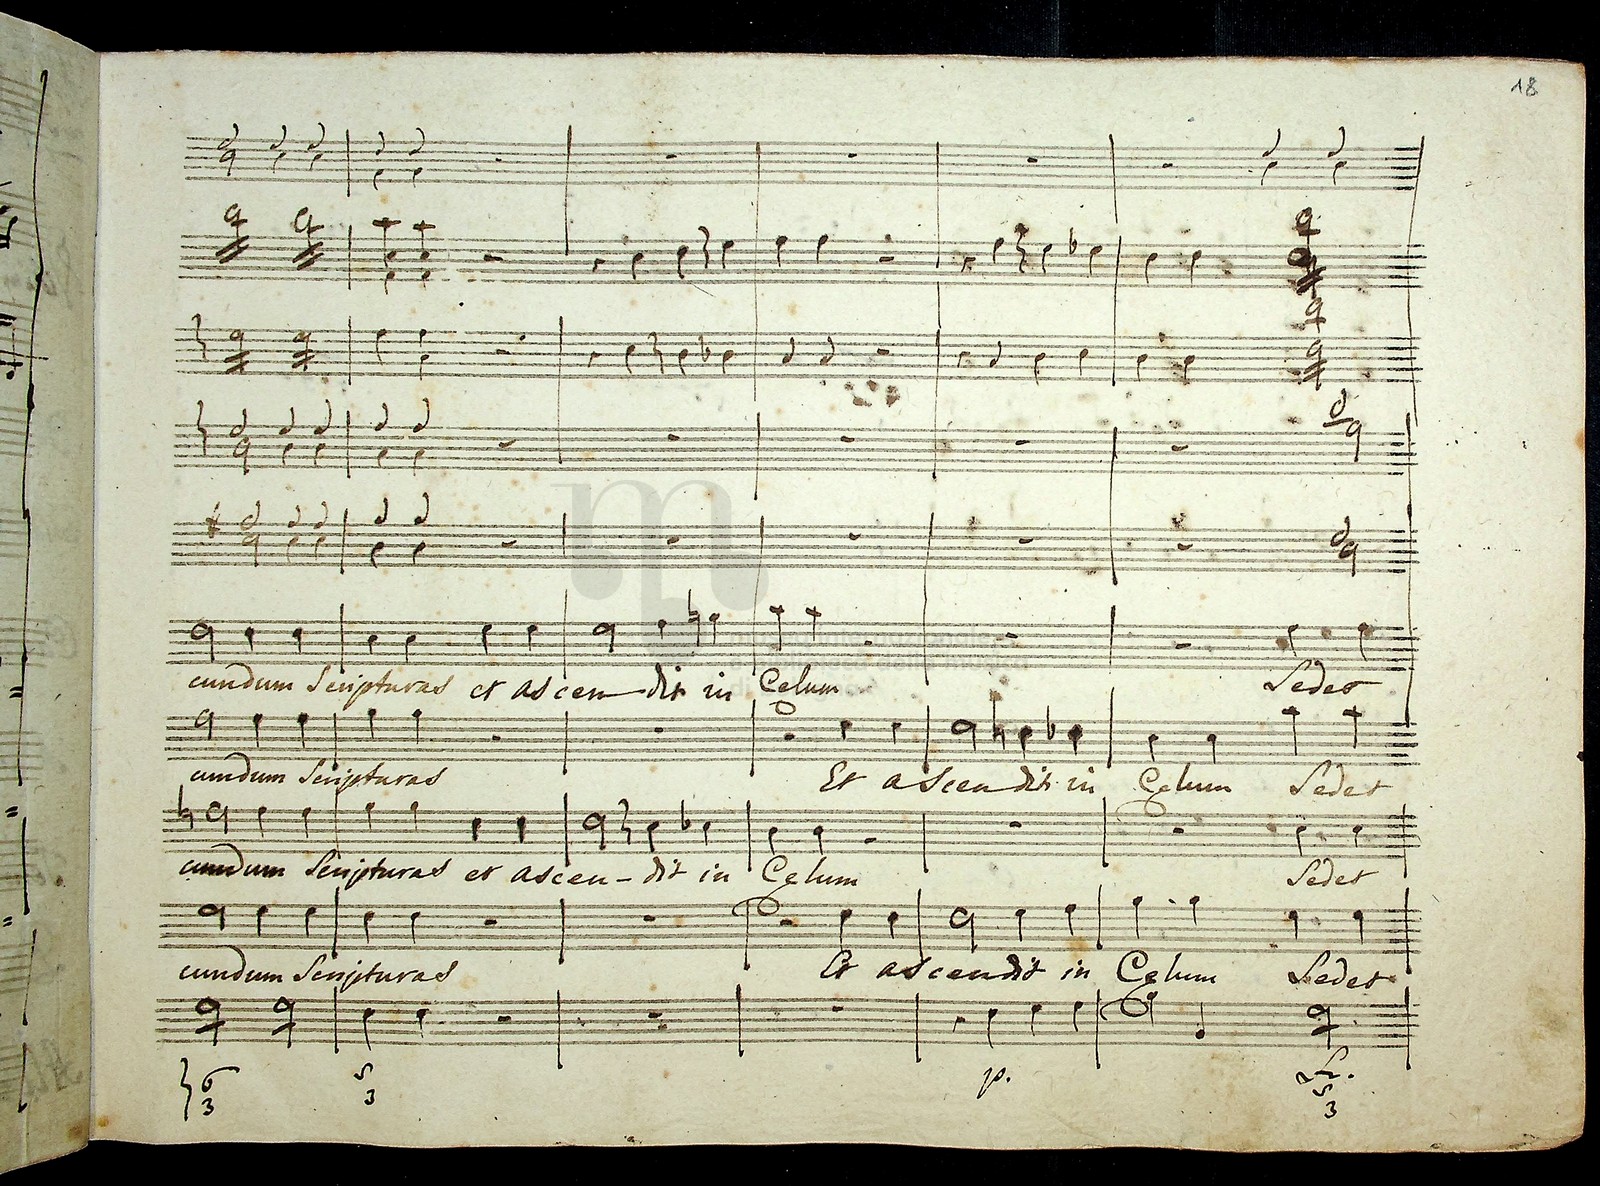 18
cundum Scripturas et ascen dit in Celum Sedet
cundum Scripturas Et ascendit in Celum Sedet
cundum Scripturas et ascen - dit in Celum Sedet
cundum Scripturas Et ascendit in Celum Sedet
p.
6 5 5
3 3 3